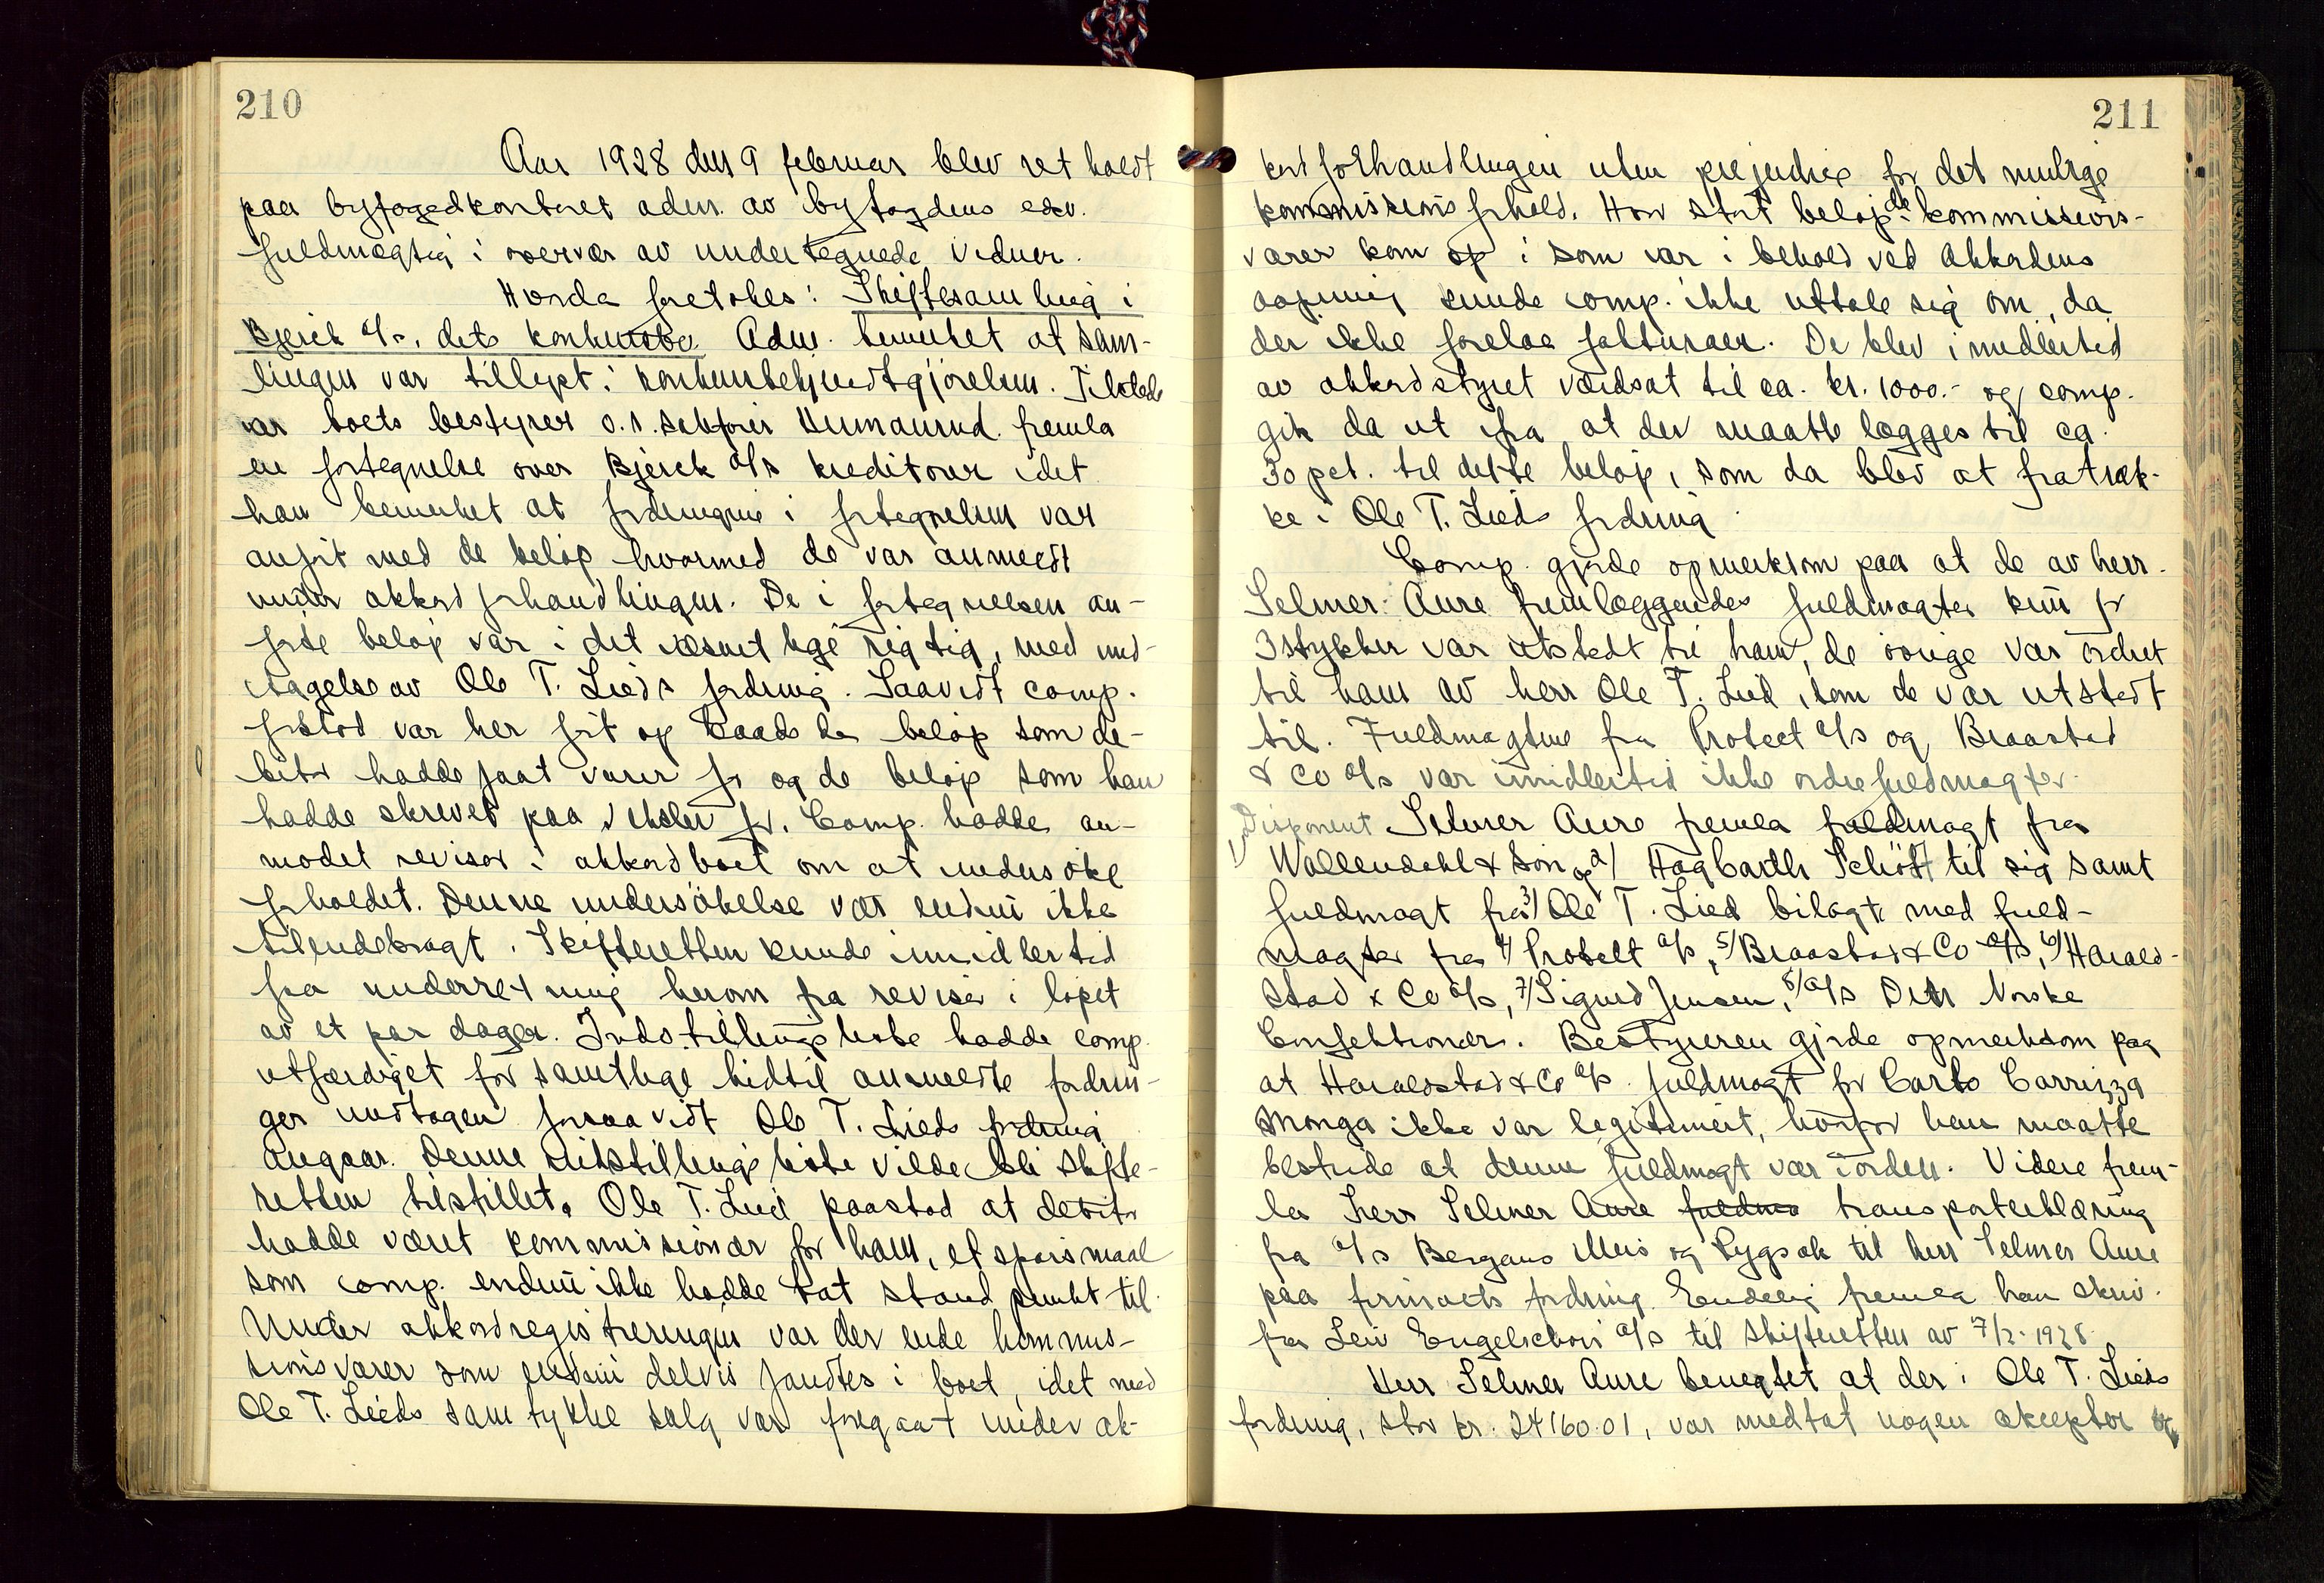 210
Aar 1928 den 9 februar blev ret holdt
paa byfogedkontoret adm. av byfogdens edsv.
fuldmægtig i overvær av undertegnede vidner.
Hvorda foretokes: Skiftesamling i
Bjerck a/s, dets konkursbo. Adm. bemerket at sam-
lingen var tillyst i konkursbekjendtgjørelsen. Tilstede
var boets bestyrer o.r.sakfører Unmanrud. fremla
en fortegnelse over Bjerck a/s kreditorer idet
han bemerket at fordringene i fortegnelsen var
anført med de beløp hvormed de var anmeldt
under akkordforhandlingen. De i fortegnelsen an-
førte beløp var i det væsentlige rigtig, med und-
tagelse av Ole T. Lieds fordring. Saavidt comp.
forstod var her ført op baade de beløp som de-
bitor hadde faat varer for og de beløp som han
hadde skrevet paa veksler for. Comp. hadde an-
modet revisor i akkordboet om at undersøke
forholdet. Denne undersøkelse var endnu ikke
tilendebragt. Skifteretten kunde imidlertid
faa underretning herom fra revisor i løpet
av et par dager. Indstillingsliste hadde comp.
utfærdiget for samtlige hidtil anmeldte fordrin-
ger undtagen forsaavidt Ole T. Lieds fordring
angaar. Denne indstillingsliste vilde bli skifte-
retten tilstillet. Ole T. Lied paastod at debitor
hadde været kommissionær for ham, et spørsmaal
som comp. endnu ikke hadde tat standpunkt til.
Under akkordregistreringen var der ende kommis-
sionsvarer som endnu delvis fandtes i boet, idet med
Ole T. Lieds samtykke salg var foregaat under ak-
211
kordforhandlingen uten prejudice for det mulige
kommissionsforhold. Hvor stort beløp de kommissions-
varer kom op i som var i behold ved akkordens
aapning kunde comp. ikke uttale sig om, da
der ikke forelaa fakturaer. De blev imidlertid
av akkordstyret værdsat til ca. kr. 1000.- og comp.
gik da ut ifra at der maatte lægges til ca.
30 pct. til dette beløp, som da blev at fratræk-
ke i Ole T. Lieds fordring.
Comp. gjorde opmerksom paa at de av herr
Selmer Aure fremlæggendes fuldmagter kun for
3 stykker var utstedt til ham, de øvrige var ordret
til ham av herr Ole T. Lied, som de var utstedt
til. Fuldmagtene fra Protect a/s og Braastad
& Co a/s var imidlertid ikke ordrefuldmagter.
Disponent Selmer Aure fremla fuldmagt fra
1/ Wallendahl & Søn og 2/ Hagbarth Schjøtt til sig samt
fuldmagt fra 3/ Ole T. Lied bilagt med fuld-
magter fra 4/ Protekt a/s, 5/ Braastad & Co a/s, 6/ Harald-
stad & Co a/s, 7/ Sigurd Jensen, 8/ a/s Den Norske
Confektionær. Bestyreren gjorde opmerksom paa
at Haraldstad & Co a/s fuldmagt for Carlo Carrizza
Monga ikke var legitimert, hvorfor han maatte
bestride at denne fuldmagt var iorden. Videre frem-
la Herr Selmer Aure fuldma transporterklæring
fra a/s Bergans Meis og Rygsæk til herr Selmer Aure
paa firmaets fordring. Endelig fremla han skriv.
fra Leiv Engelschiøn a/s til skifteretten av 7/2-1928.
Herr Selmer Aure benegtet at der i Ole T. Lieds
fordring, stor kr. 24160.01, var medtat nogen aksepter og